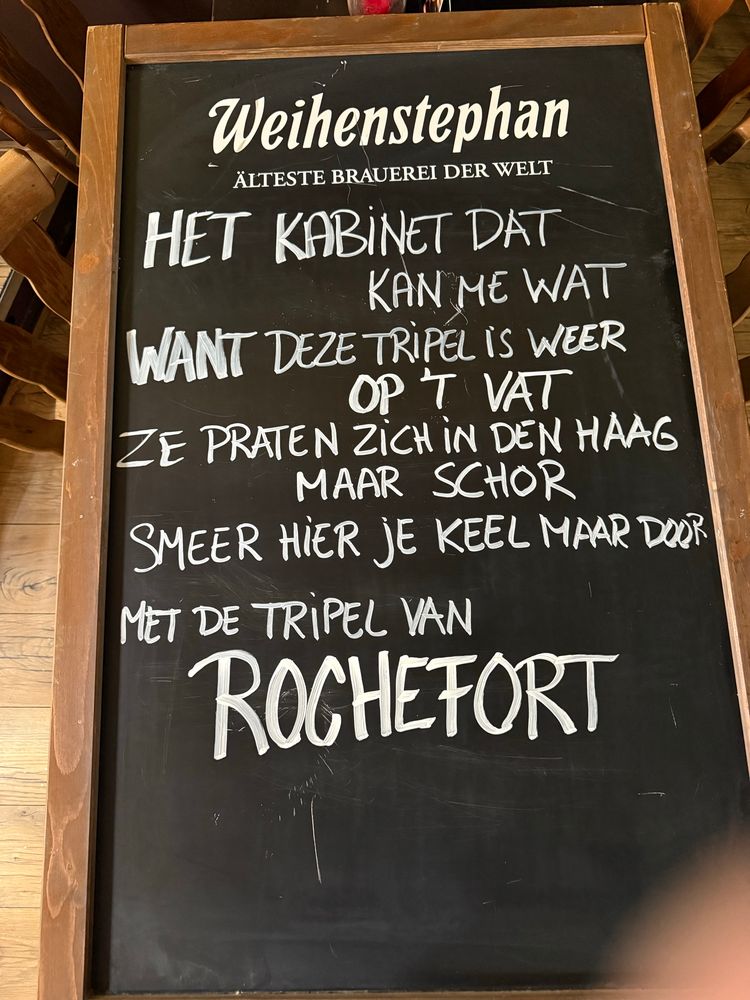 Weihenstephan
ÄLTESTE BRAUEREI DER WELT
HET KABINET DAT
KAN ME WAT
WANT DEZE TRIPEL IS WEER
OP 'T VAT
ZE PRATEN ZICH IN DEN HAAG
MAAR SCHOR
SMEER HIER JE KEEL MAAR DOOR
MET DE TRIPEL VAN
ROCHEFORT